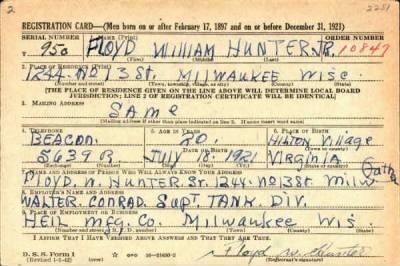 2 2251
REGISTRATION CARD—(Men born on or after February 17, 1897 and on or before December 31, 1921)
SERIAL NUMBER 1. NAME (Print) ORDER NUMBER
T 950 FLOYD WILLIAM HUNTER JR. 10847
(First) (Middle) (Last)
2. PLACE OF RESIDENCE (Print)
1244 NO 13 ST. MILWAUKEE WISC
(Number and street) (Town, township, village, or city) (County) (State)
[THE PLACE OF RESIDENCE GIVEN ON THE LINE ABOVE WILL DETERMINE LOCAL BOARD
JURISDICTION; LINE 2 OF REGISTRATION CERTIFICATE WILL BE IDENTICAL]
3. MAILING ADDRESS
SAME
[Mailing address if other than place indicated on line 2. If same insert word same]
4. TELEPHONE 5. AGE IN YEARS 6. PLACE OF BIRTH
BEACON 20 HILTON Village
DATE OF BIRTH
5639R JULY 18 1921 Virginia
7. NAME AND ADDRESS OF PERSON WHO WILL ALWAYS KNOW YOUR ADDRESS (Father)
FLOYD W. HUNTER Sr. 1244 NO 13 St. Milw
8. EMPLOYER'S NAME AND ADDRESS
WALTER CONRAD Supt. TANK DIV.
9. PLACE OF EMPLOYMENT OR BUSINESS
HEIL MFG. CO. Milwaukee Wis.
I AFFIRM THAT I HAVE VERIFIED ABOVE ANSWERS AND THAT THEY ARE TRUE.
D. S. S. Form 1
(Revised 1-5-42) Floyd W. Hunter